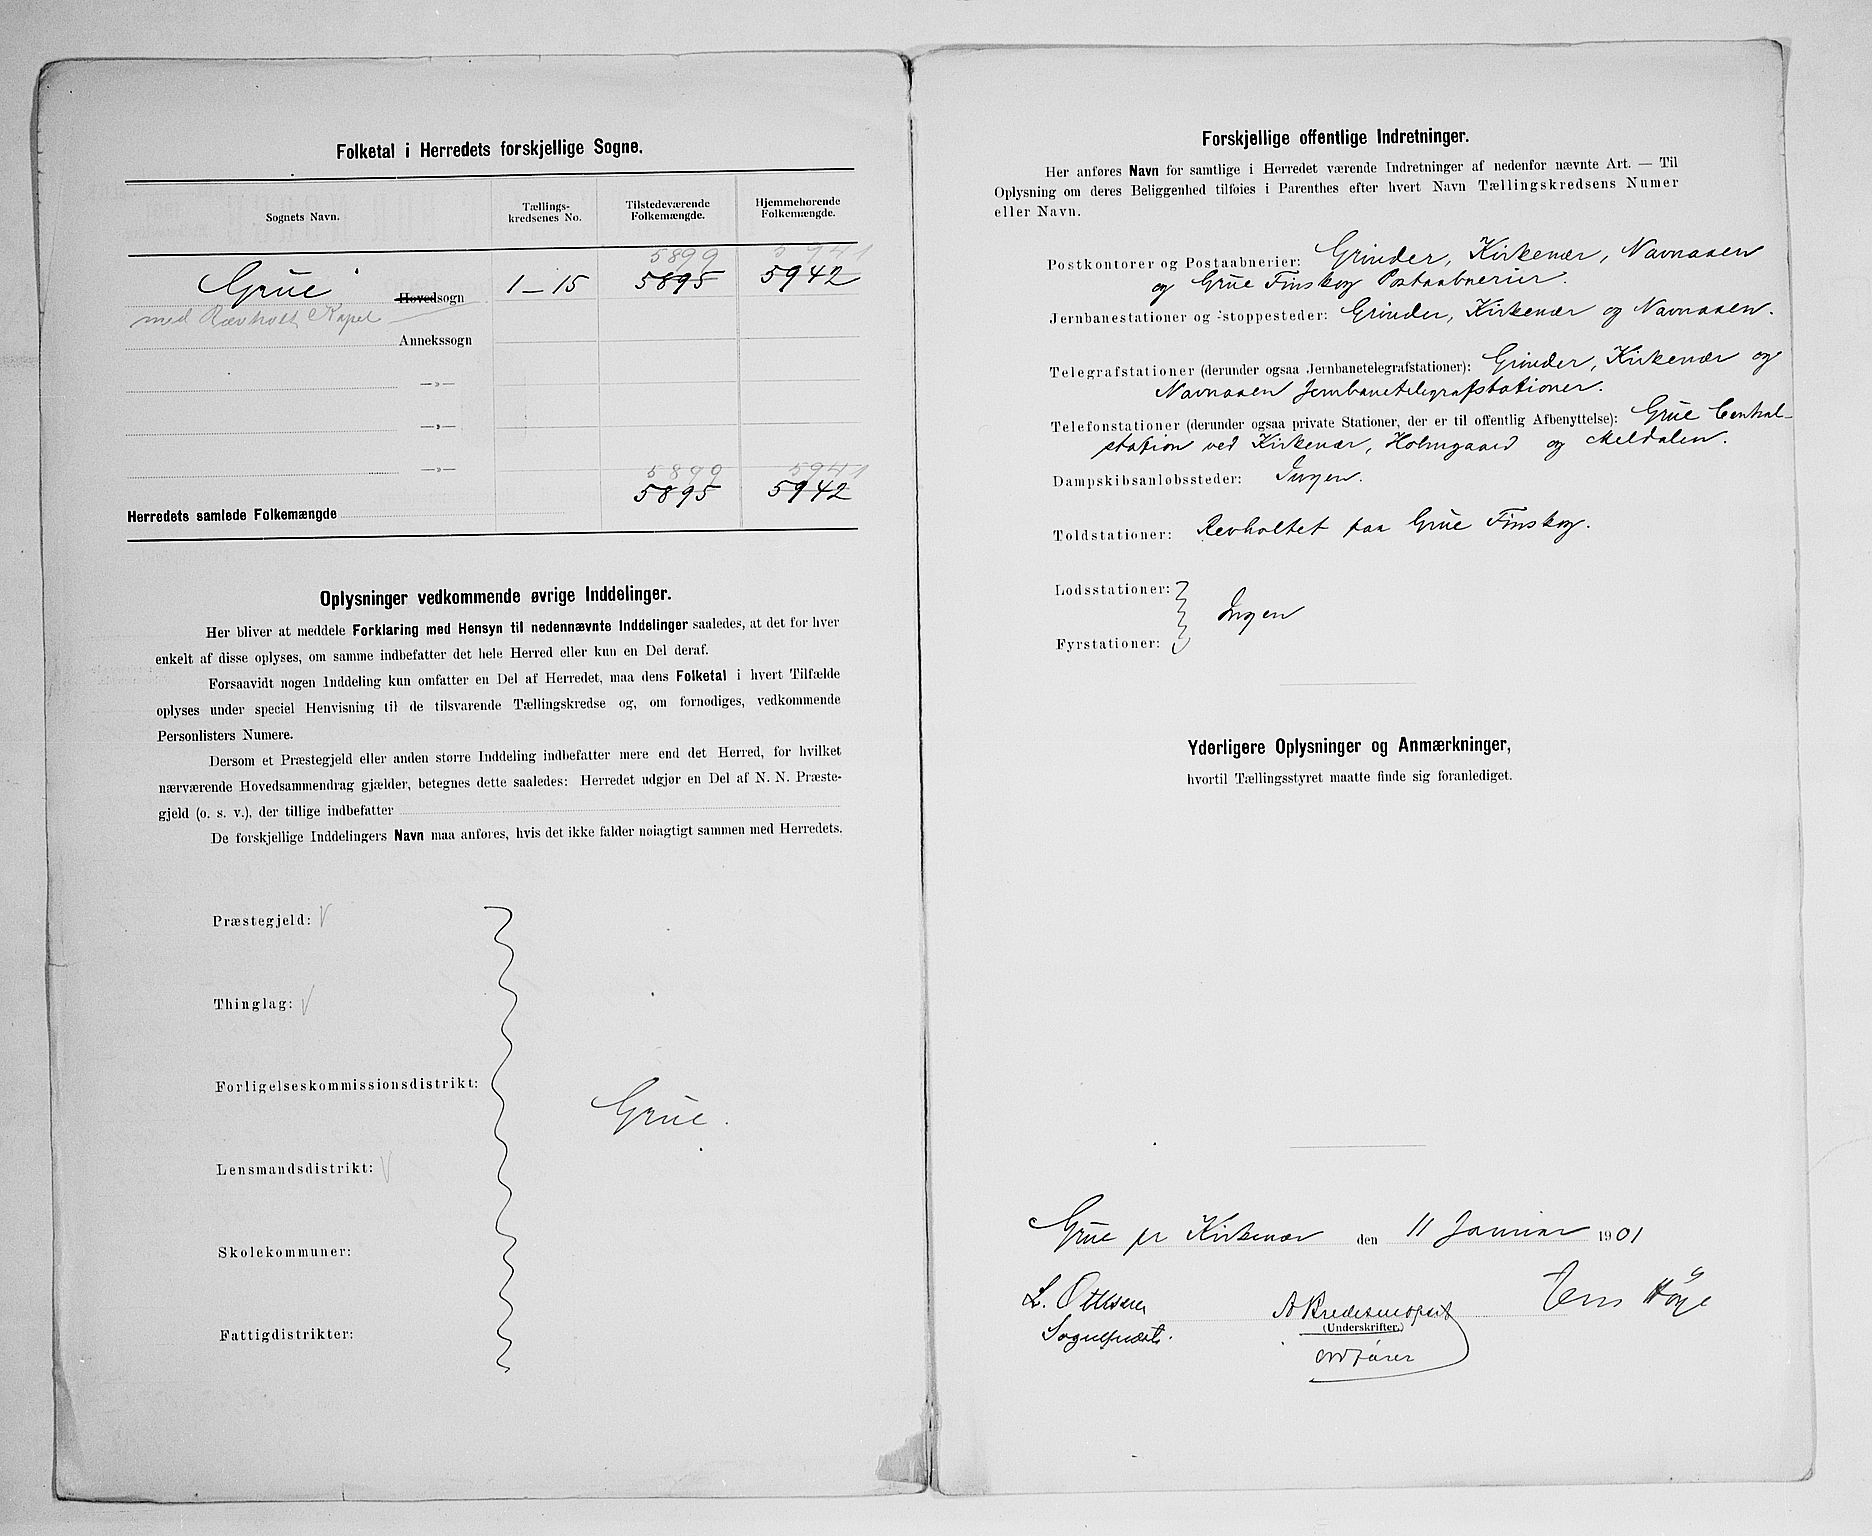 Folketal i Herredets forskjellige Sogne.
Sognets Navn.
Tællings-
kredsenes No.
Tilstedeværende
Folkemængde.
Hjemmehørende
Folkemængde.
5899 5941
Grue Hovedsogn 1–15 5895 5942
med Rævholt Kapel
Annekssogn
—»—
—»—
—»—
5899 5941
Herredets samlede Folkemængde 5895 5942
Oplysninger vedkommende øvrige Inddelinger.
Her bliver at meddele Forklaring med Hensyn til nedennævnte Inddelinger saaledes, at det for hver
enkelt af disse oplyses, om samme indbefatter det hele Herred eller kun en Del deraf.
Forsaavidt nogen Inddeling kun omfatter en Del af Herredet, maa dens Folketal i hvert Tilfælde
oplyses under speciel Henvisning til de tilsvarende Tællingskredse og, om fornødiges, vedkommende
Personlisters Numere.
Dersom et Præstegjeld eller anden større Inddeling indbefatter mere end det Herred, for hvilket
nærværende Hovedsammendrag gjælder, betegnes dette saaledes: Herredet udgjør en Del af N. N. Præste-
gjeld (o. s. v.), der tillige indbefatter
De forskjellige Inddelingers Navn maa anføres, hvis det ikke falder nøiagtigt sammen med Herredets.
Præstegjeld:
Thinglag:
Forligelseskommissionsdistrikt:
Grue.
Lensmandsdistrikt:
Skolekommuner:
Fattigdistrikter:
Forskjellige offentlige Indretninger.
Her anføres Navn for samtlige i Herredet værende Indretninger af nedenfor nævnte Art. — Til
Oplysning om deres Beliggenhed tilføies i Parenthes efter hvert Navn Tællingskredsens Numer
eller Navn.
Postkontorer og Postaabnerier: Grinder, Kirkenær, Navnaaen
og Grue Finskog Postaabnerier.
Jernbanestationer og -stoppesteder: Grinder, Kirkenær og Navnaaen.
Telegrafstationer (derunder ogsaa Jernbanetelegrafstationer): Grinder, Kirkenær og
Navnaaen Jernbanetelegrafstationer.
Telefonstationer (derunder ogsaa private Stationer, der er til offentlig Afbenyttelse): Grue Central-
station ved Kirkenær, Holmgaard og Meldalen.
Dampskibsanløbssteder: Ingen.
Toldstationer: Revholtet paa Grue Finskog.
Lodsstationer:
Ingen
Fyrstationer:
Yderligere Oplysninger og Anmærkninger,
hvortil Tællingsstyret maatte finde sig foranlediget.
Grue pr Kirkenær den 11 Januar 1901
L. Ottesen Jens Høye
Sognepræst.
(Underskrifter.)
ordfører